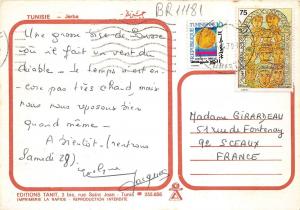 TUNISIE - Jerba
BR11181
Une grosse bise de
où il fait un vent du
diable. le temps n'est en-
core pas très chaud, mais
nous nous reposons bien
quand même.
A bientôt (rentrons
Samedi 28).
Jacques
REPUBLIQUE TUNISIENNE
75
Madame GIRARDEAU
51 rue de Fontenay
92 SCEAUX
FRANCE
EDITIONS TANIT, 3 bis, rue Saint Jean - Tunis
IMPRIMERIE LA RAPIDE - REPRODUCTION INTERDITE